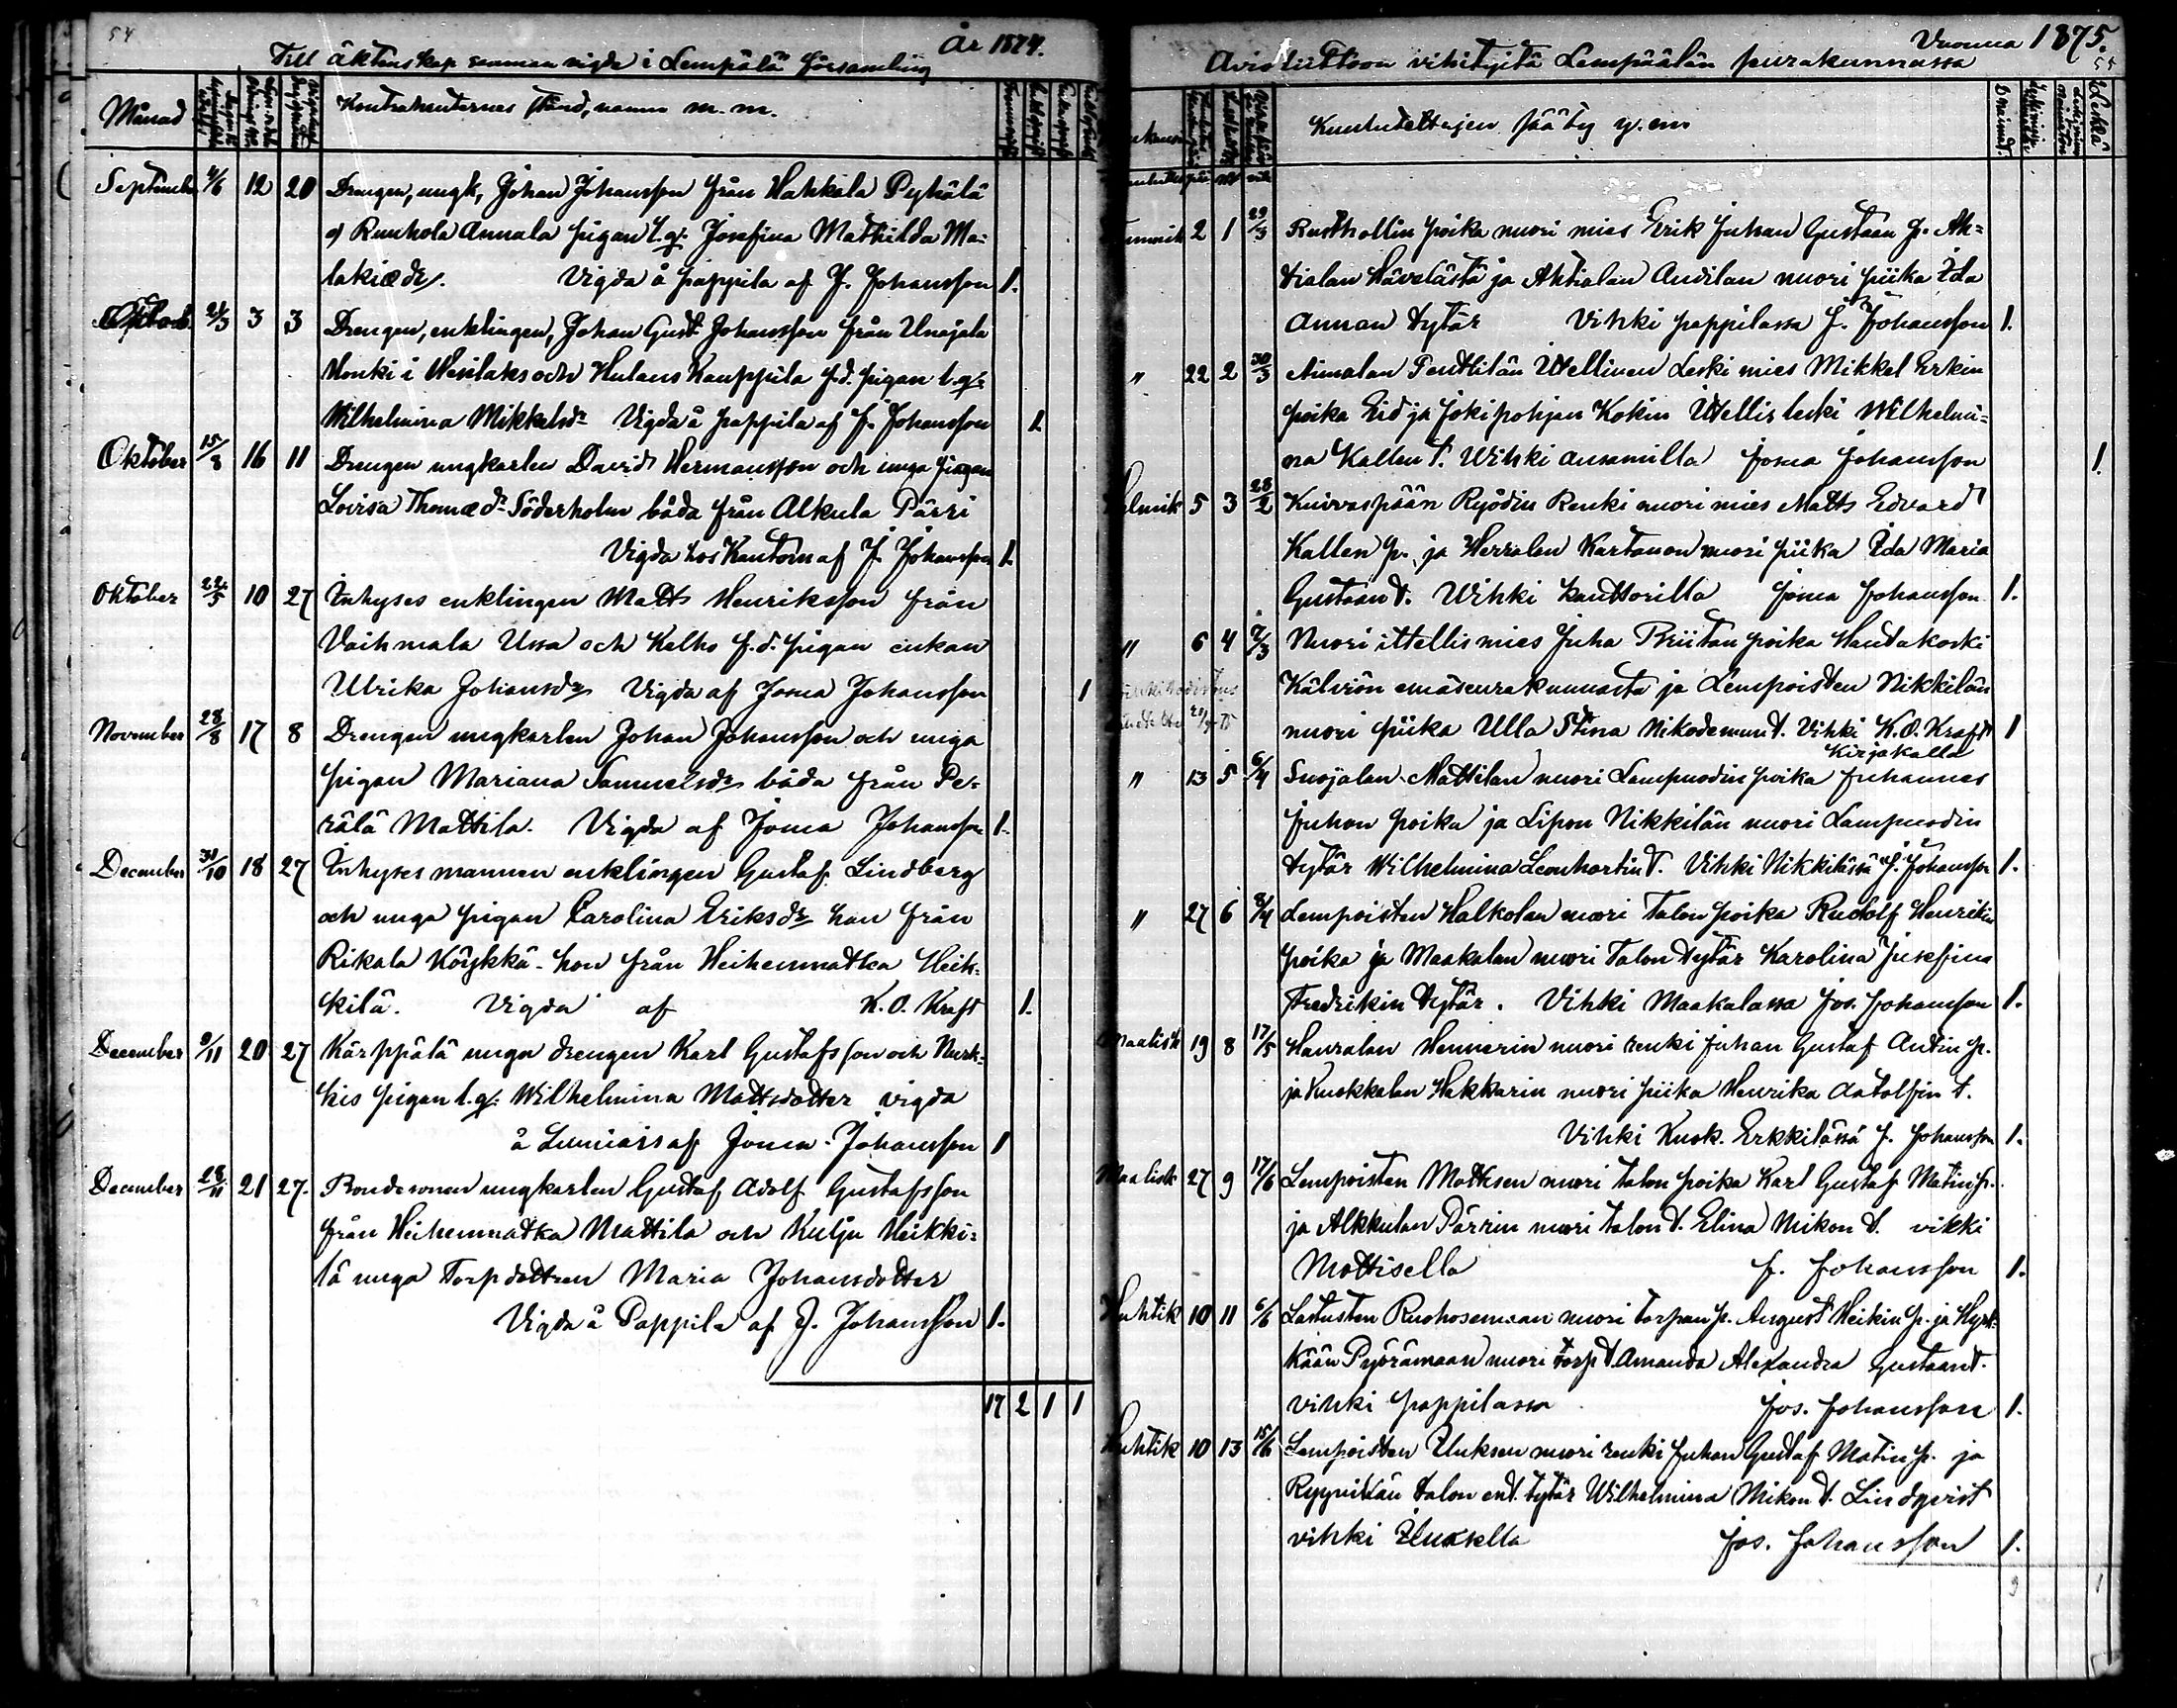 54
År 1874.
Till äktenskap samman vigde i Lempälä församling
Månad
Kontrahenternes stånd, namn m.m.
September 12 20 Drengen, ungk, Johan Johansson från Hakkala Pyhälä
o) Kuuhola Annala pigan l.q: Josefina Mathilda Ma=
lakiædr. Vigda å pappila af J. Johansson 1.
21/3 3 3 Drengen, enklingen, Johan Gust Johansson från Unajala
Monki i Wesilaks och Hulaus Kauppila f.d. pigan l.q:
Wilhelmina Mikkelsdr Vigda å pappila af J. Johansson 1.
Oktober 15/8 16 11 Drengen ungkarlen David Hermansson och unga pigan
Lovisa Thomædr Söderholm båda från Alkula Pärri
Vigda hos Kantorn af J. Johansson 1.
Oktober 22/5 10 27 Inhyses enklingen Matts Henriksson från
Vaihmala Ussa och Kelho f.d. pigan enkan
Ulrika Johansdr Vigda af Josua Johansson 1
November 28/8 17 8 Drengen ungkarlen Johan Johansson och unga
pigan Mariana Samuelsdr båda från Pe=
rälä Mattila. Vigda af Josua Johansson 1.
December 30/10 18 27 Inhyses mannen enklingen Gustaf Lindberg
och unga pigan Carolina Eriksdr han från
Rikala Köykkä - hon från Heihenmatka Heik=
kilä. Vigda af K.O. Kraft 1.
December 9/11 20 27 Kärppälä unga drengen Karl Gustafsson och Nurk=
kis pigan l.q: Wilhelmina Mattsdotter vigda
å af Josua Johansson 1
December 28/11 21 27. Bondesonen ungkarlen Gustaf Adolf Gustafsson
från Heihenmatka Mattila och Kulju Heikki=
lä unga Torpdottren Maria Johansdotter
Vigda å Pappila af J. Johansson 1.
17 2 1 1
Vuonna 1875.
55
Avioliittoon vihityitä Lempäälän seurakunnassa
Kuulutettujen sääty y.m.
2 1 29/3 Rusthollin poika nuori mies Erik Juhan Gustaan p. Ah=
tialan Hävelästä ja Ahtialan Anttilan nuori piika Ida
Annan tytär Vihki pappilassa J. Johansson 1.
" 22 2 30/3 Aimalan Penttilän Itellinen Leski mies Mikkel Erkin
poika Eid ja Jokipohjan Kokin Itellis leski Wilhelmi=
na Kallen t. Wihki ansamilla Josua Johansson 1.
Helmik 5 3 28/2 Kuivaspään Ryödin Renki nuori mies Matts Edvard
Kallen p. ja Herralan Kartanon nuori piika Ida Maria
Gustaan t. Wihki kanttorilla Josua Johansson 1.
" 6 4 7/3 Nuori ittellis mies Juha Priitan poika Hautakoski
Kälviön emäseurakunnasta ja Lempoisten Nikkilän
nuori piika Ulla Stina Nikodemun t. Vihki K.O. Kraft 1
Kirjakalla
" 13 5 6/4 Suojalan Mattilan nuori Lampuodin poika Juhannes
Juhon poika ja Lipon Nikkilän nuori Lampuodin
tytär Wilhelmina Leonhartin t. Vihki Nikkilässä J. Johansson 1.
" 27 6 Lempoisten Halkolan nuori Talon poika Rudolf Henrikin
poika ja Maakalan nuori Talon tytär Karolina Josefina
Fredrikin tytär. Vihki Maakalassa Jos. Johansson 1.
Maalisk 19 8 17/5 Hauralan Hennerin nuori renki Juhan Gustaf Antin p.
ja Kuokkalan Hakkarin nuori piika Henrika Aatolfin t.
Vihki Kuok. Erkkilässä J. Johansson 1.
Maalisk 27 9 17/6 Lempoisten Mottisen nuori talon poika Karl Gustaf Matin p.
ja Alkkulan Pärrin nuori talon t. Elina Mikon t. vihki
Mottisella J. Johansson 1.
Huhtik 10 11 6/6 Lastusten Ruohosemaan nuori torpan p. August Heikin p. ja Hyrk=
kään Pyörämaan nuori torp t. Amanda Alexandra Gustaan t.
vihki pappilassa Jos. Johansson 1.
Huhtik 10 13 15/6 Lempoisten nuori renki Juhan Gustaf Matin p. ja
Ryynikän talon ent. tytär Wilhelmina Mikon t. Lindqvist
vihki Jos. Johansson 1.
9 1